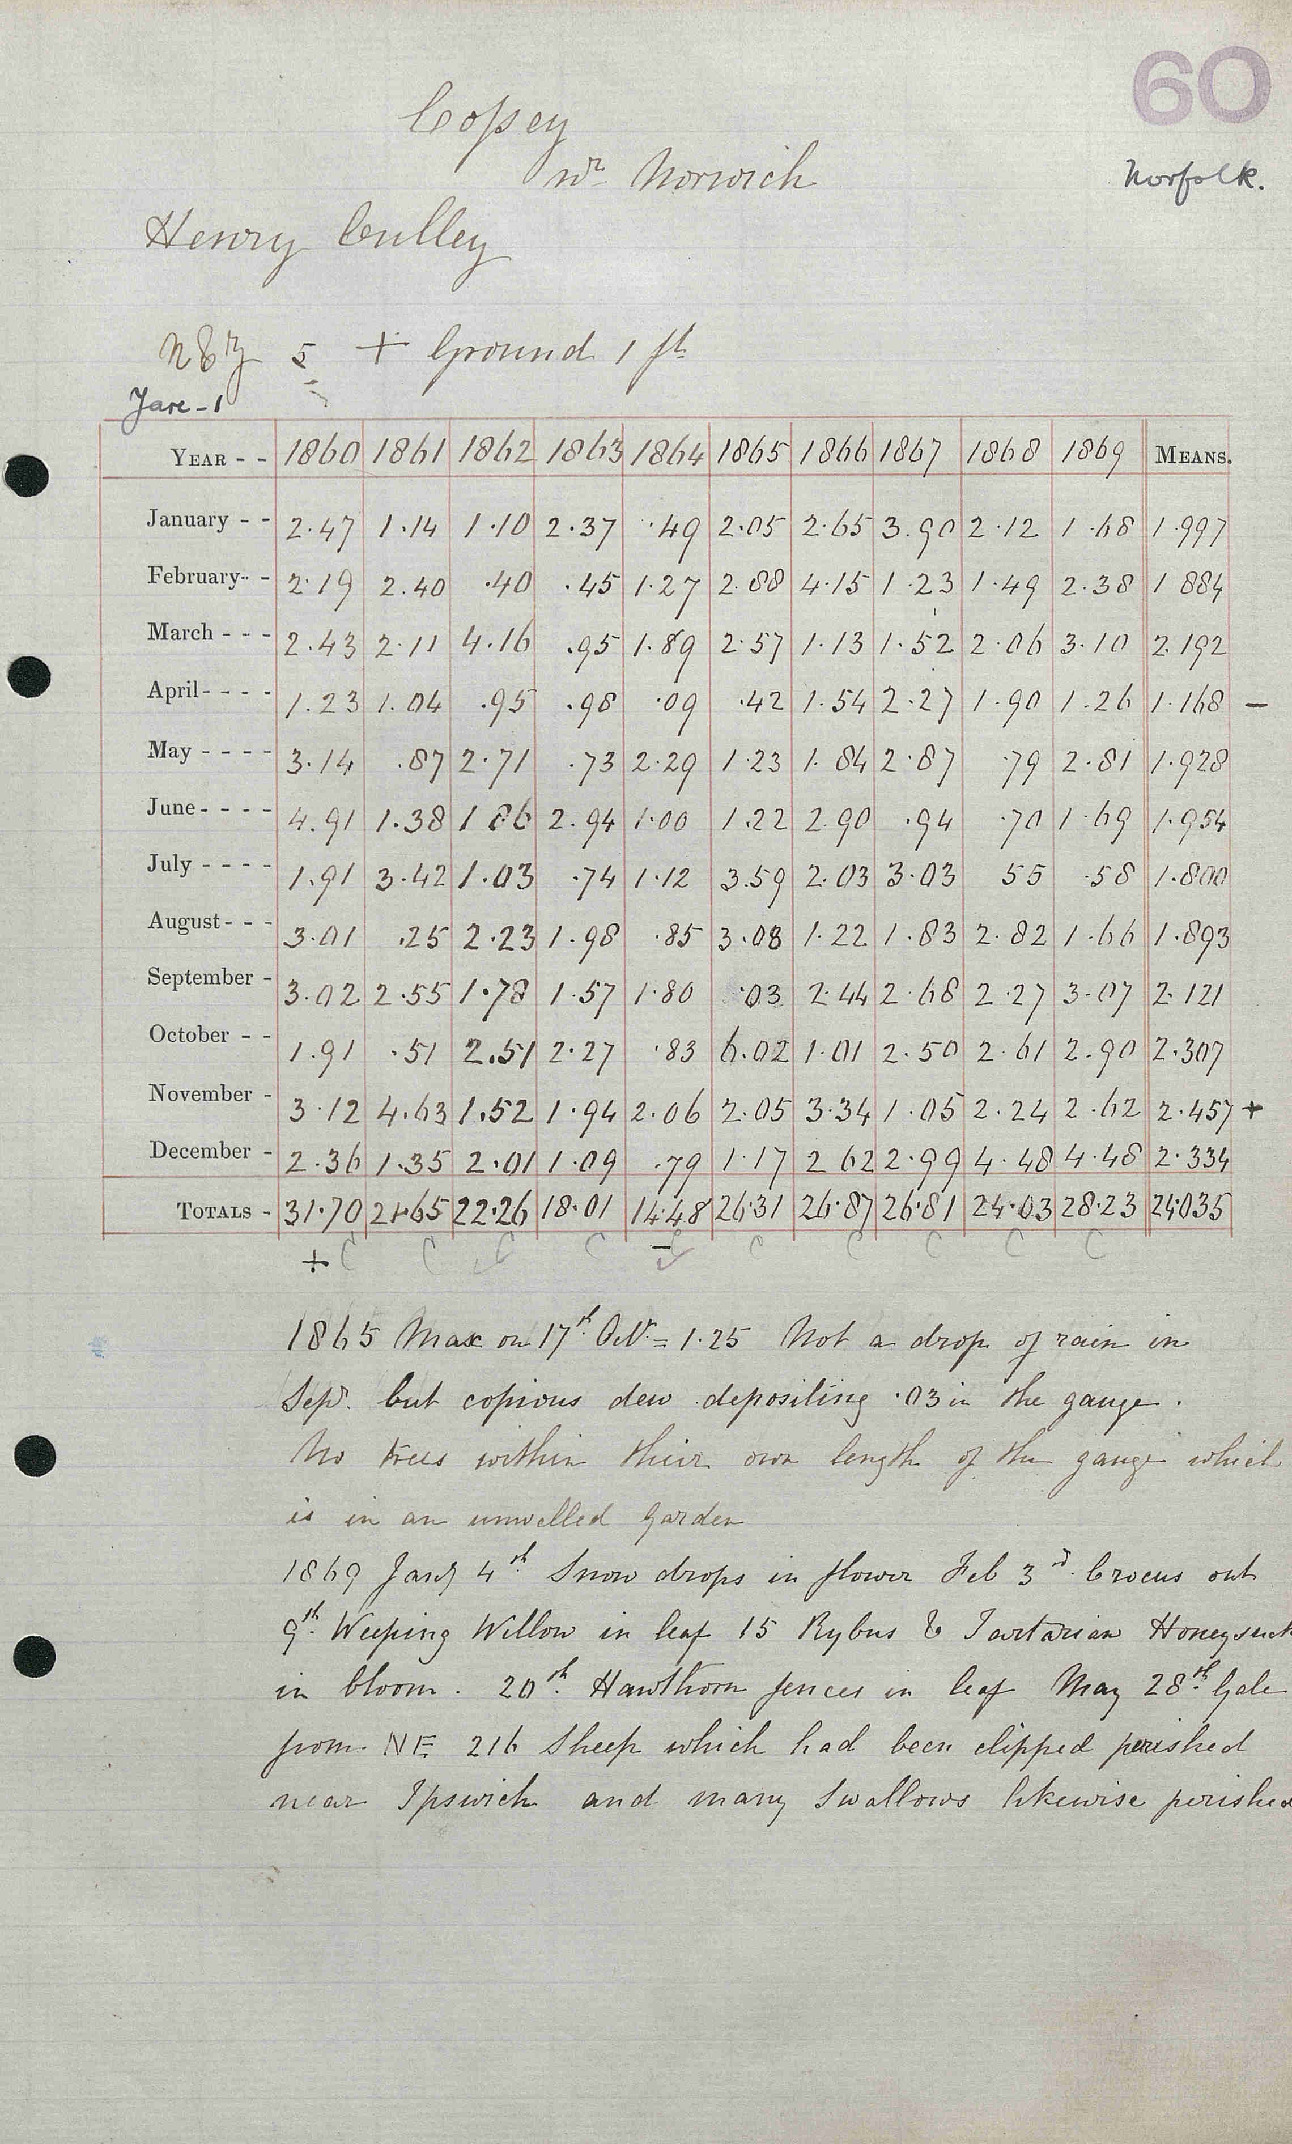 60
Cossey
nr Norwich
Norfolk.
Henry Culley
5 + Ground 1 ft
Yare - 1
YEAR - - 1860 1861 1862 1863 1864 1865 1866 1867 1868 1869 MEANS.
January - - 2.47 1.14 1.10 2.37 .49 2.05 2.65 3.90 2.12 1.68 1.997
February - - 2.19 2.40 .40 .45 1.27 2.88 4.15 1.23 1.49 2.38 1 884
March - - - 2.43 2.11 4.16 .95 1.89 2.57 1.13 1.52 2.06 3.10 2.192
April - - - - 1.23 1.04 .95 .98 .09 .42 1.54 2.27 1.90 1.26 1.168 -
May - - - - 3.14 .87 2.71 .73 2.29 1.23 1.84 2.87 .79 2.81 1.928
June - - - - 4.91 1.38 1 86 2.94 1.00 1.22 2.90 .94 .70 1.69 1.954
July - - - - 1.91 3.42 1.03 .74 1.12 3.59 2.03 3.03 55 .58 1.800
August - - - 3.01 .25 2.23 1.98 .85 3.08 1.22 1.83 2.82 1.66 1.893
September - 3.02 2.55 1.78 1.57 1.80 .03 2.44 2.68 2.27 3.07 2.121
October - - 1.91 .51 2.51 2.27 .83 6.02 1.01 2.50 2.61 2.90 2.307
November - 3.12 4.63 1.52 1.94 2.06 2.05 3.34 1.05 2.24 2.62 2.457 +
December - 2.36 1.35 2.01 1.09 .79 1.17 2 62 2.99 4.48 4.48 2.334
TOTALS - 31.70 21.65 22.26 18.01 14.48 26.31 26.87 26.81 24.03 28.23 24.035
+ C C C C - C C C C C C
1865 Max on 17th Octr = 1.25 Not a drop of rain in
Sepr. but copious dew depositing .03 in the gauge.
No trees within their own length of the gauge which
is in an unwalled garden
1869 Jany 4th Snow drops in flower Feb 3rd Crocus out
9th Weeping Willow in leaf 15 Rybus & Tartarian Honeysuck
in bloom. 20th Hawthorn fences in leaf May 28th Gale
from NE 216 Sheep which had been clipped perished
near Ipswich and many Swallows likewise perished